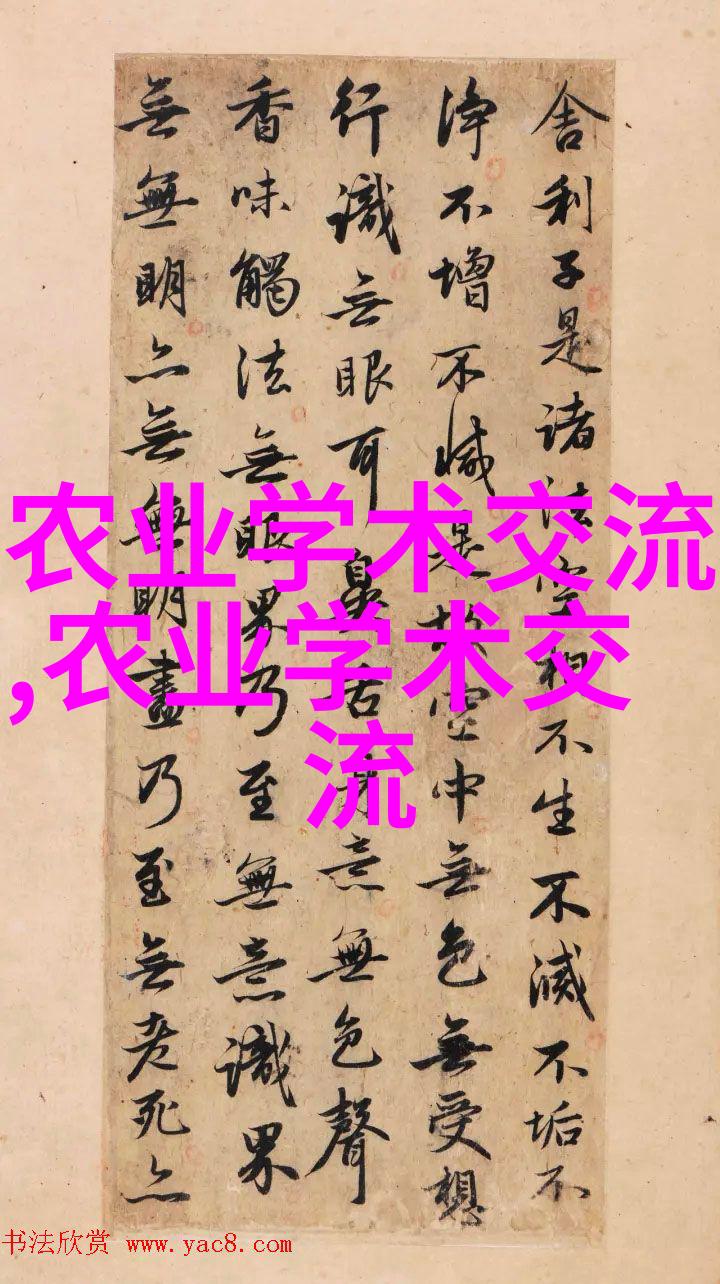 舍利子是诸法空相不生不滅不垢不
淨不增不減是故空中無色無受想
行識无眼耳鼻舌身意無色聲
香味觸法無眼界乃至無意識界
無無明亦無無明盡乃至無老死亦
农业学术交流
,农业学术交
流
书法欣赏 www.yac8.com